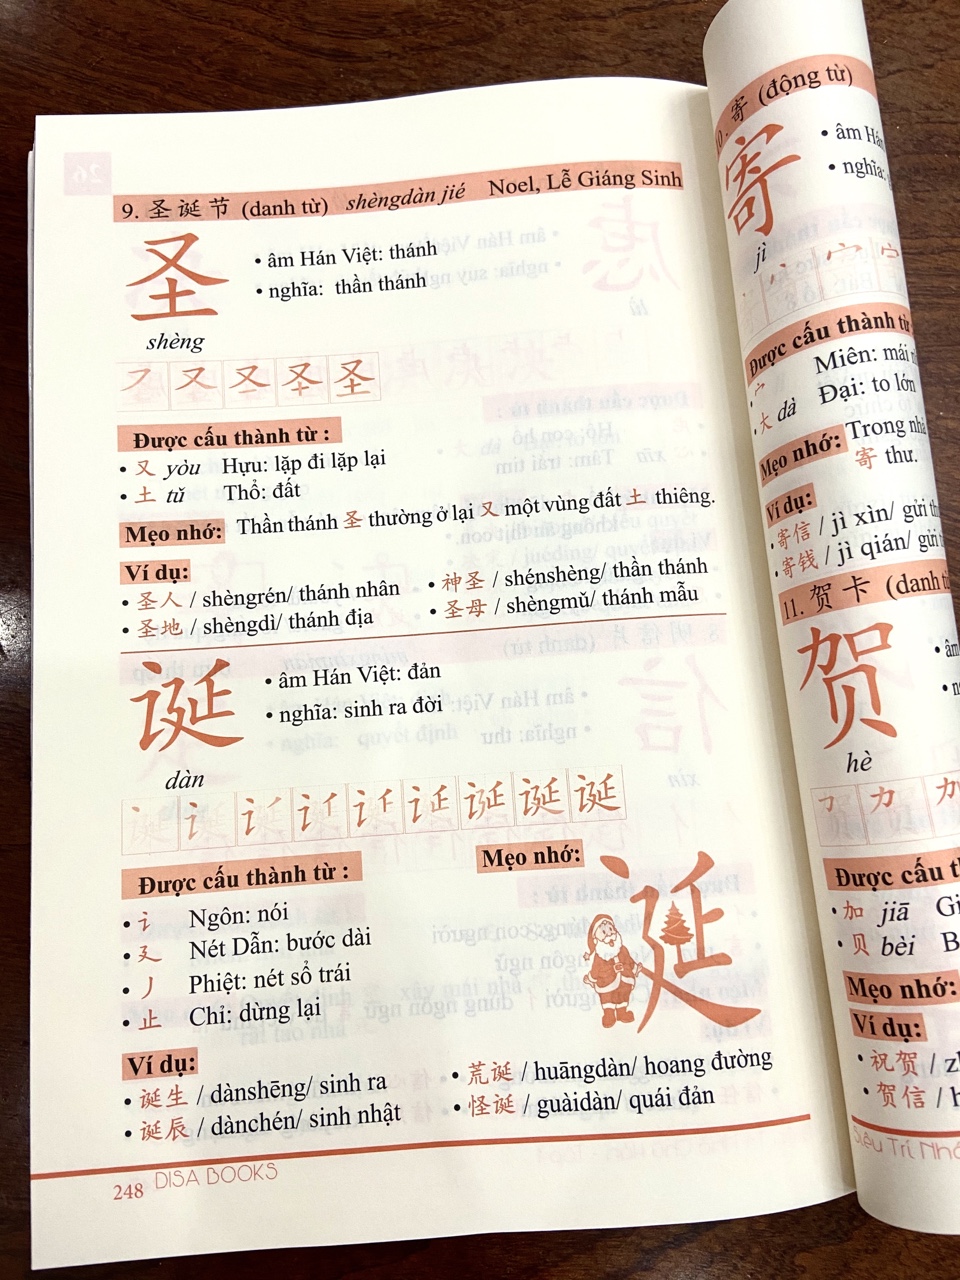 9. 圣诞节 (danh từ) shèngdàn jié Noel, Lễ Giáng Sinh
圣
• âm Hán Việt: thánh
• nghĩa: thần thánh
shèng
Được cấu thành từ :
• 又 yòu Hựu: lặp đi lặp lại
• 土 tǔ Thổ: đất
Mẹo nhớ: Thần thánh 圣 thường ở lại 又 một vùng đất 土 thiêng.
Ví dụ:
• 圣人 / shèngrén/ thánh nhân
• 神圣 / shénshèng/ thần thánh
• 圣地 / shèngdì/ thánh địa
• 圣母 / shèngmǔ/ thánh mẫu
诞
• âm Hán Việt: đản
• nghĩa: sinh ra đời
dàn
Được cấu thành từ :
• 讠 Ngôn: nói
• 廴 Nét Dẫn: bước dài
• 丿 Phiệt: nét sổ trái
• 止 Chỉ: dừng lại
Mẹo nhớ:
诞
Ví dụ:
• 诞生 / dànshēng/ sinh ra
• 荒诞 / huāngdàn/ hoang đường
• 诞辰 / dànchén/ sinh nhật
• 怪诞 / guàidàn/ quái đản
248 DISA BOOKS
10. 寄 (động từ)
寄
• âm Hán
• nghĩa:
jì
Được cấu thành từ
• 宀 Miên: mái
• 大 dà Đại: to lớn
Mẹo nhớ: Trong nhà
寄 thư.
Ví dụ:
• 寄信 / jì xìn/ gửi
• 寄钱 / jì qián/ gửi
11. 贺卡 (danh
贺
• âm
hè
Được cấu
• 加 jiā Gi
• 贝 bèi B
Mẹo nhớ:
Ví dụ:
• 祝贺 / z
• 贺信 / h
Siêu Trí Nhớ